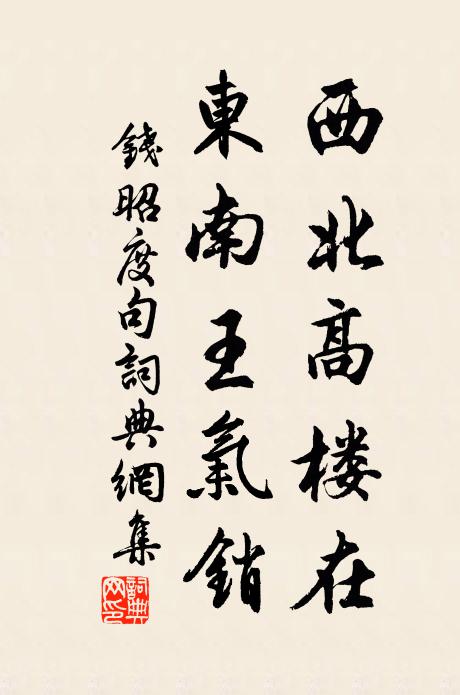 西北高楼在
東南王氣銷
錢昭度句詞典網集
詞典
网印